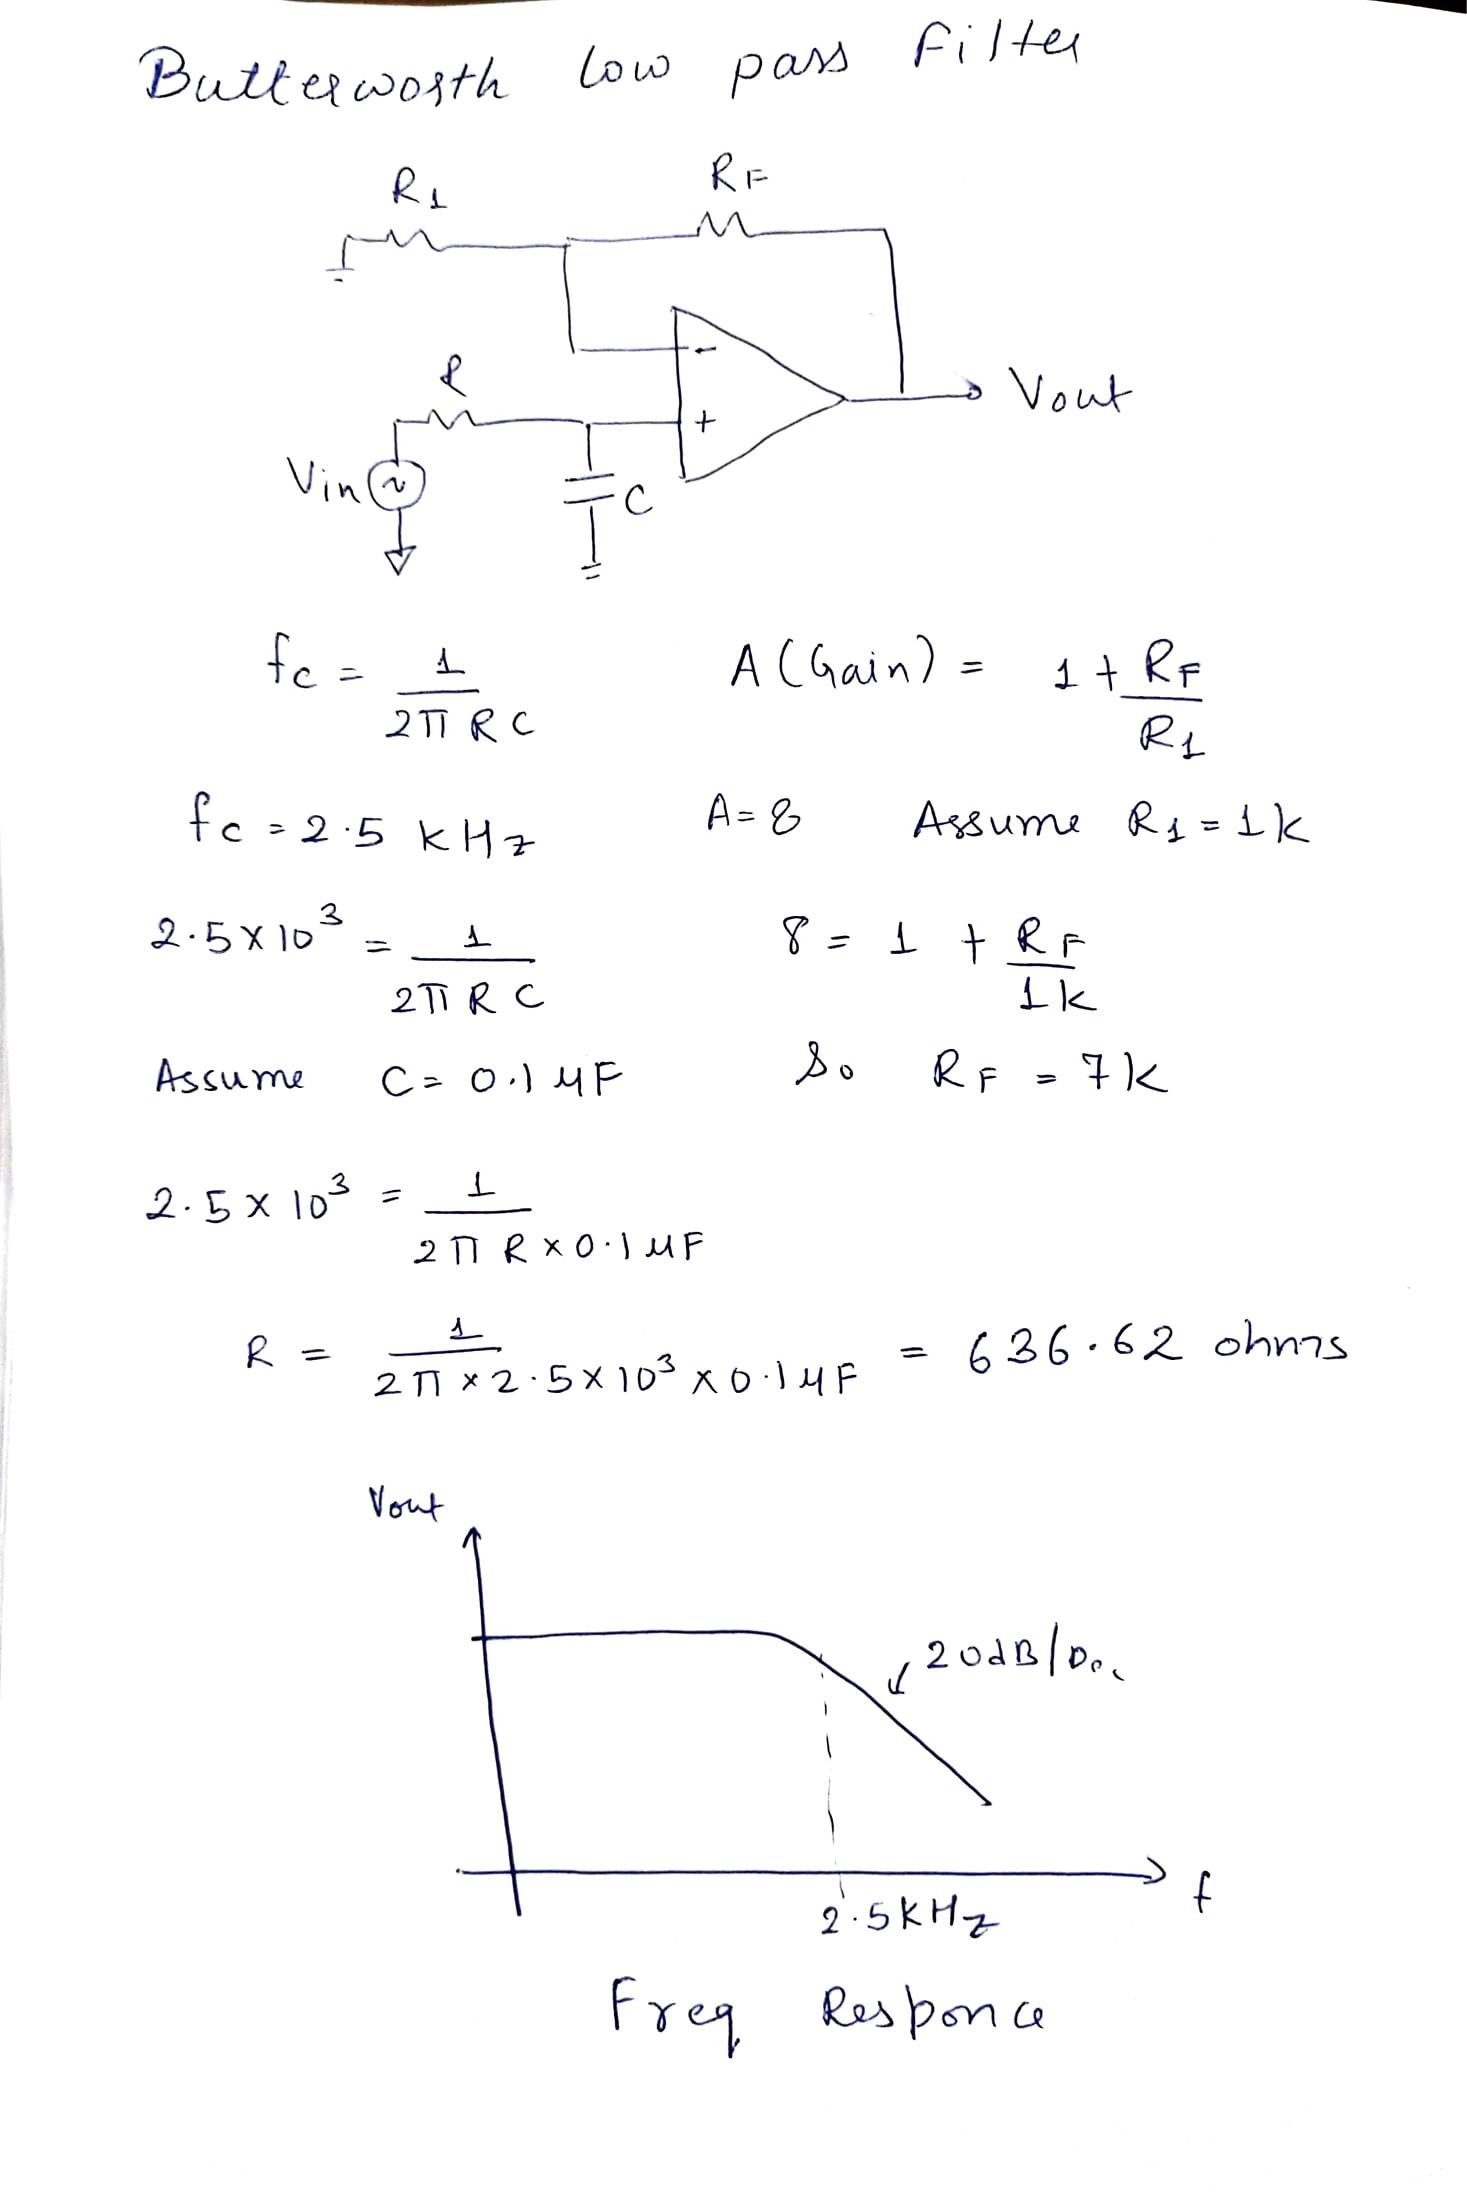 Butterworth low pass Filter
R1 RF
- 
R
+ Vout
Vin
C
fc = 1 / 2π RC A (Gain) = 1 + RF / R1
fc = 2.5 kHz A = 8 Assume R1 = 1k
2.5 x 10³ = 1 / 2π RC 8 = 1 + RF / 1k
Assume C = 0.1 µF So RF = 7k
2.5 x 10³ = 1 / 2π R x 0.1 µF
R = 1 / 2π x 2.5 x 10³ x 0.1 µF = 636.62 ohms
Vout
20dB/Dec
2.5KHz f
Freq Responce